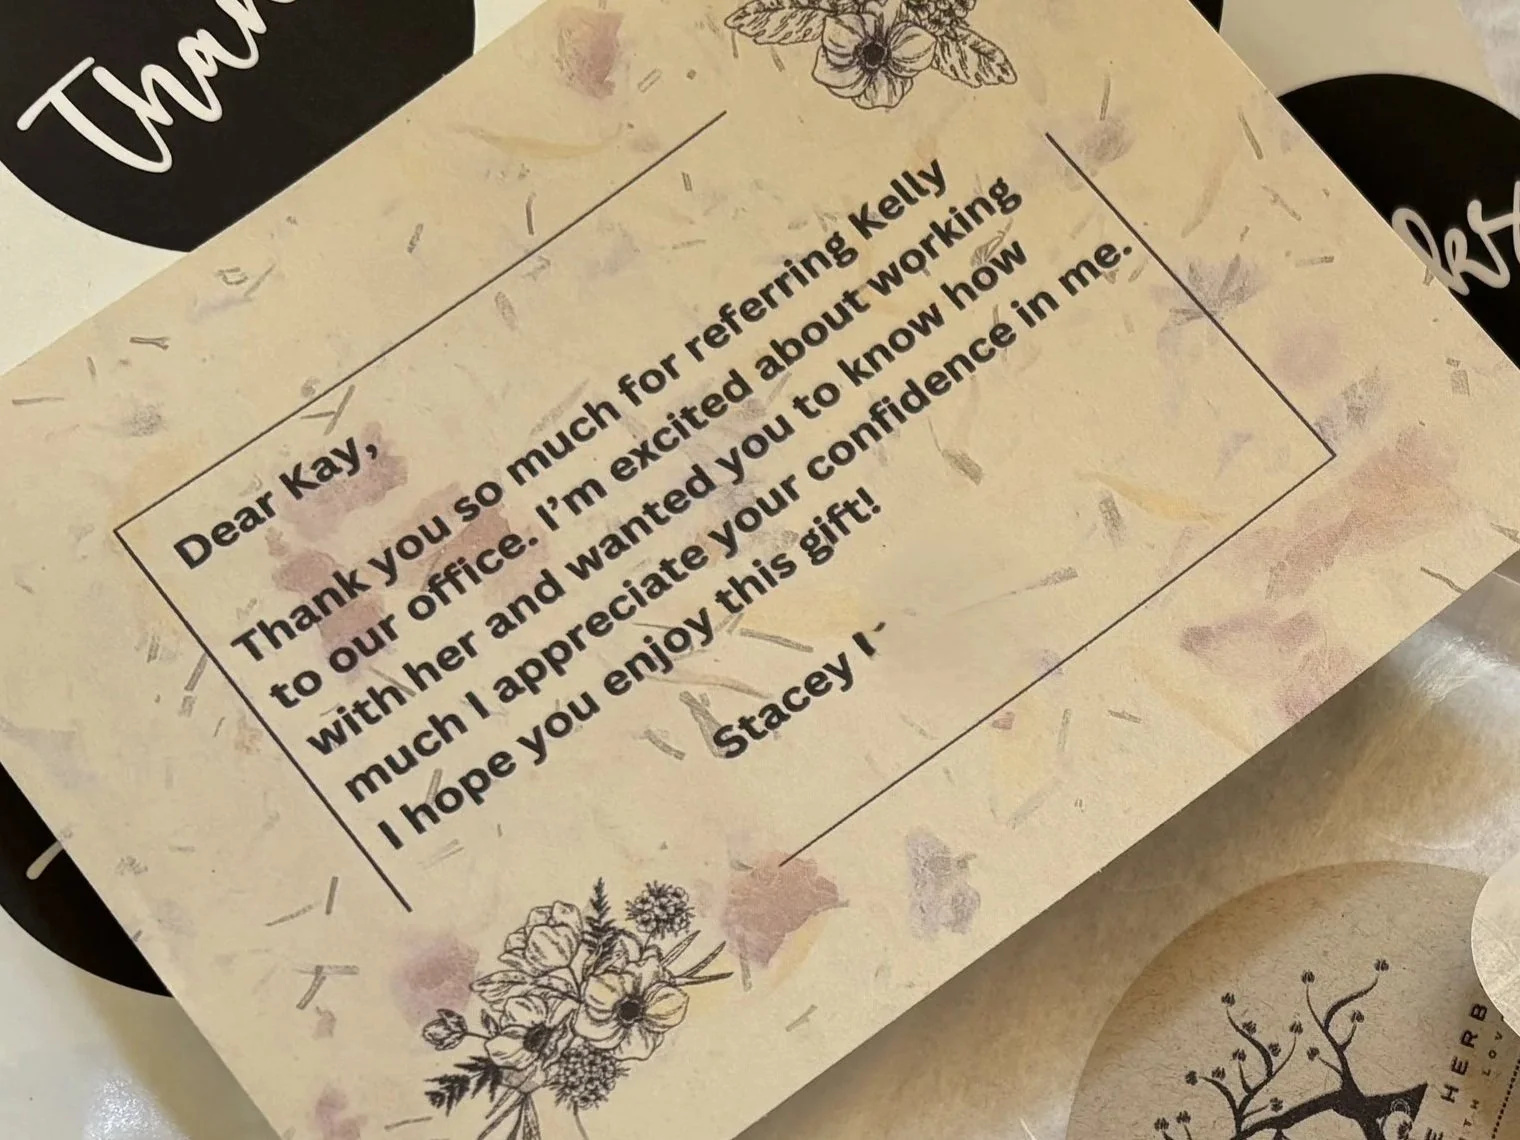 Dear Kay,
Thank you so much for referring Kelly
to our office. I'm excited about working
with her and wanted you to know how
much I appreciate your confidence in me.
I hope you enjoy this gift!
Stacey
HERB